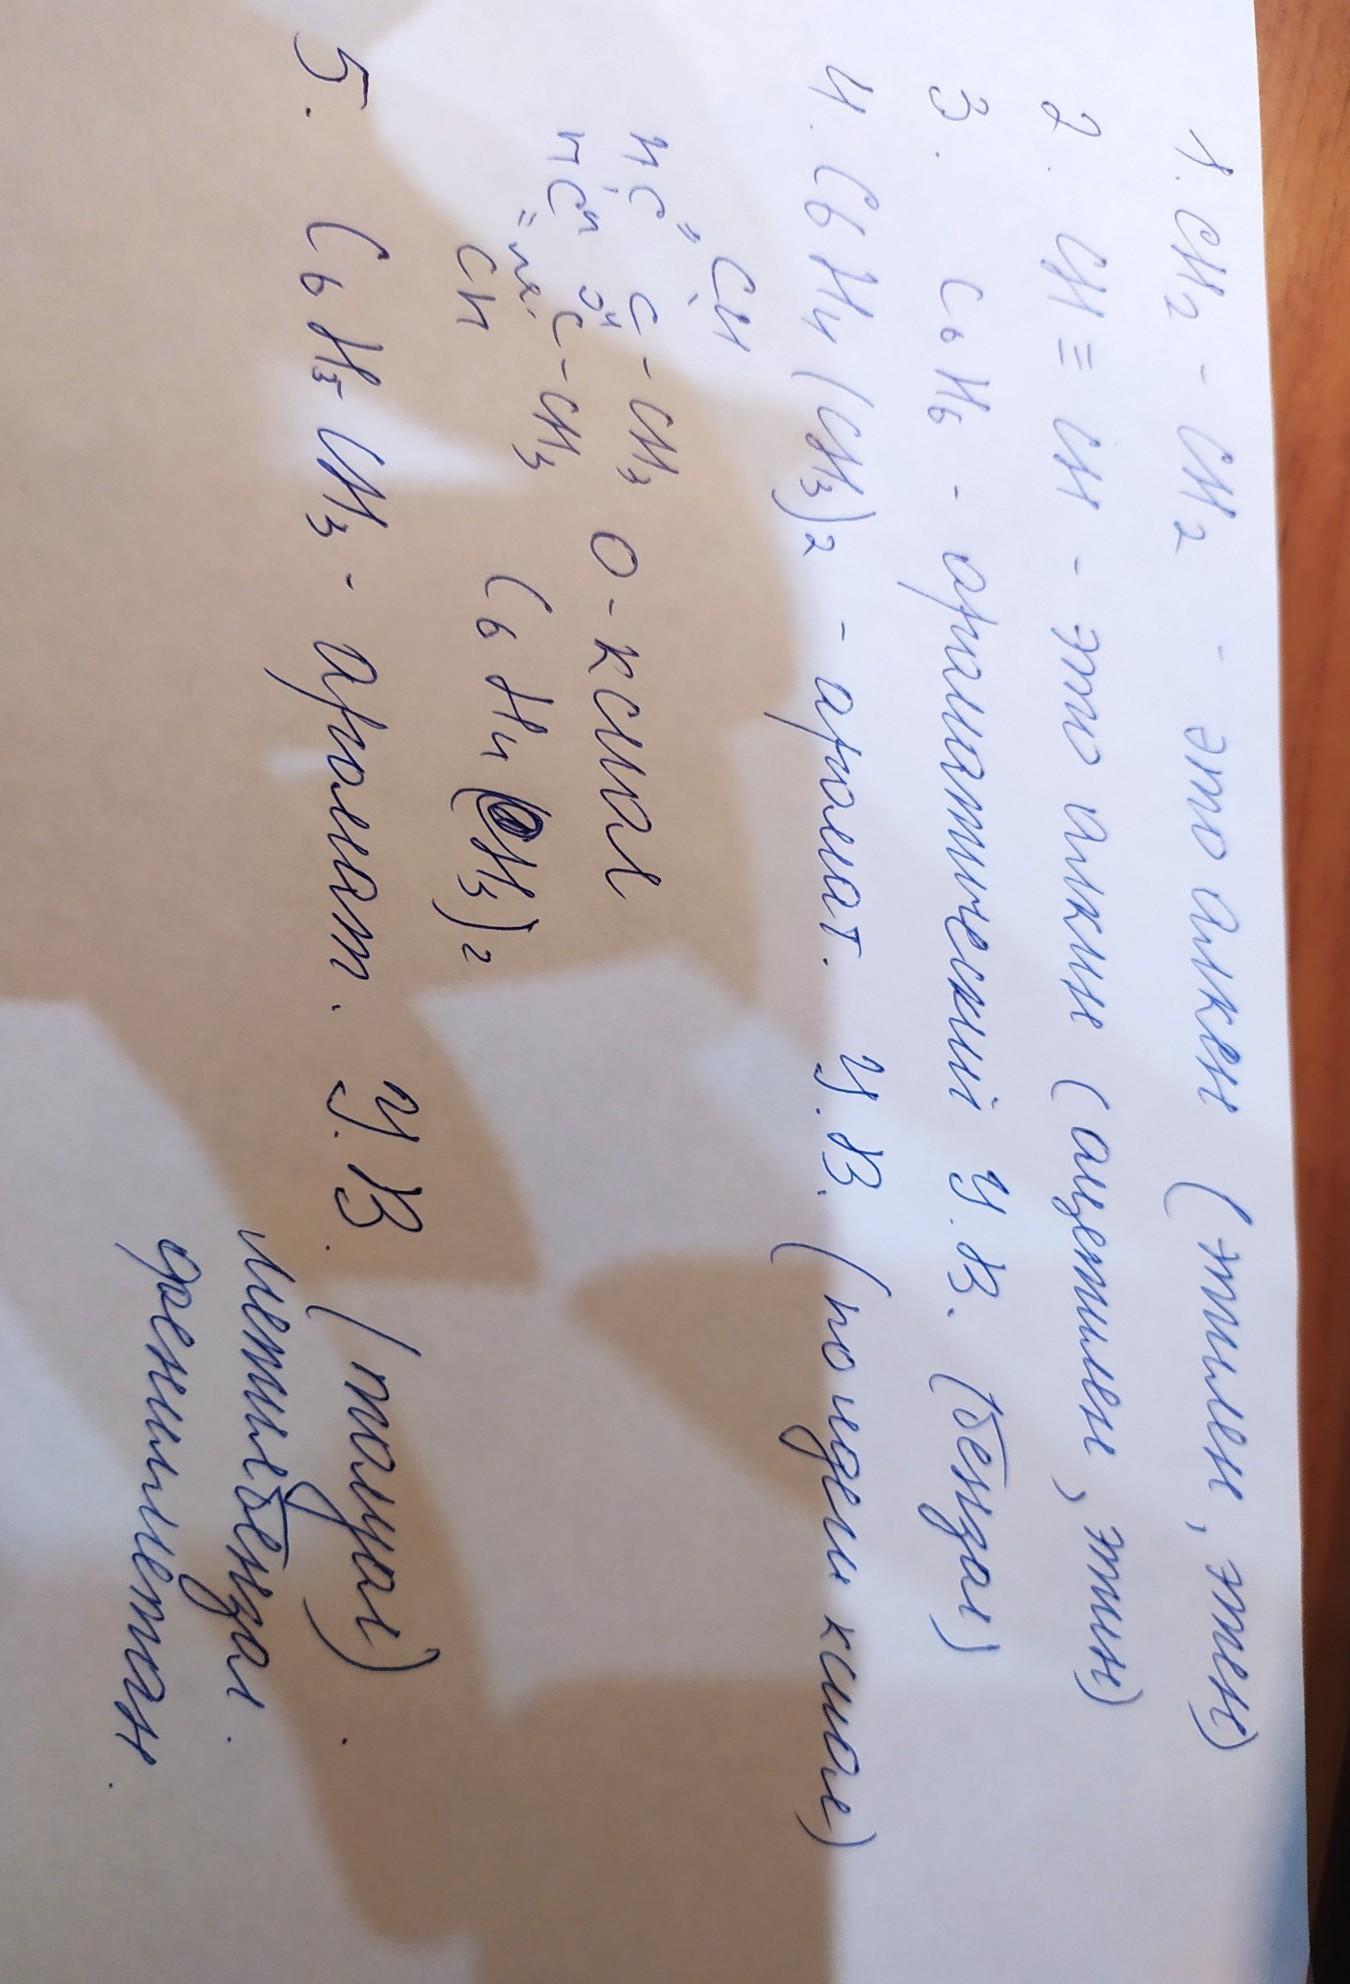 1. CH2 - CH2 - это алкен (этилен, этен)
2. CH ≡ CH - это алкин (ацетилен, этин)
3. C6H6 - ароматический У.В. (бензол)
4. C6H4(CH3)2 - аромат. У.В. (по идеи ксилол)
CH
HC C - CH3 о-ксилол
HC C - CH3
CH C6H4(CH3)2
5. C6H5CH3 - аромат. У.В. (толуол).
метилбензол.
фенилметан.